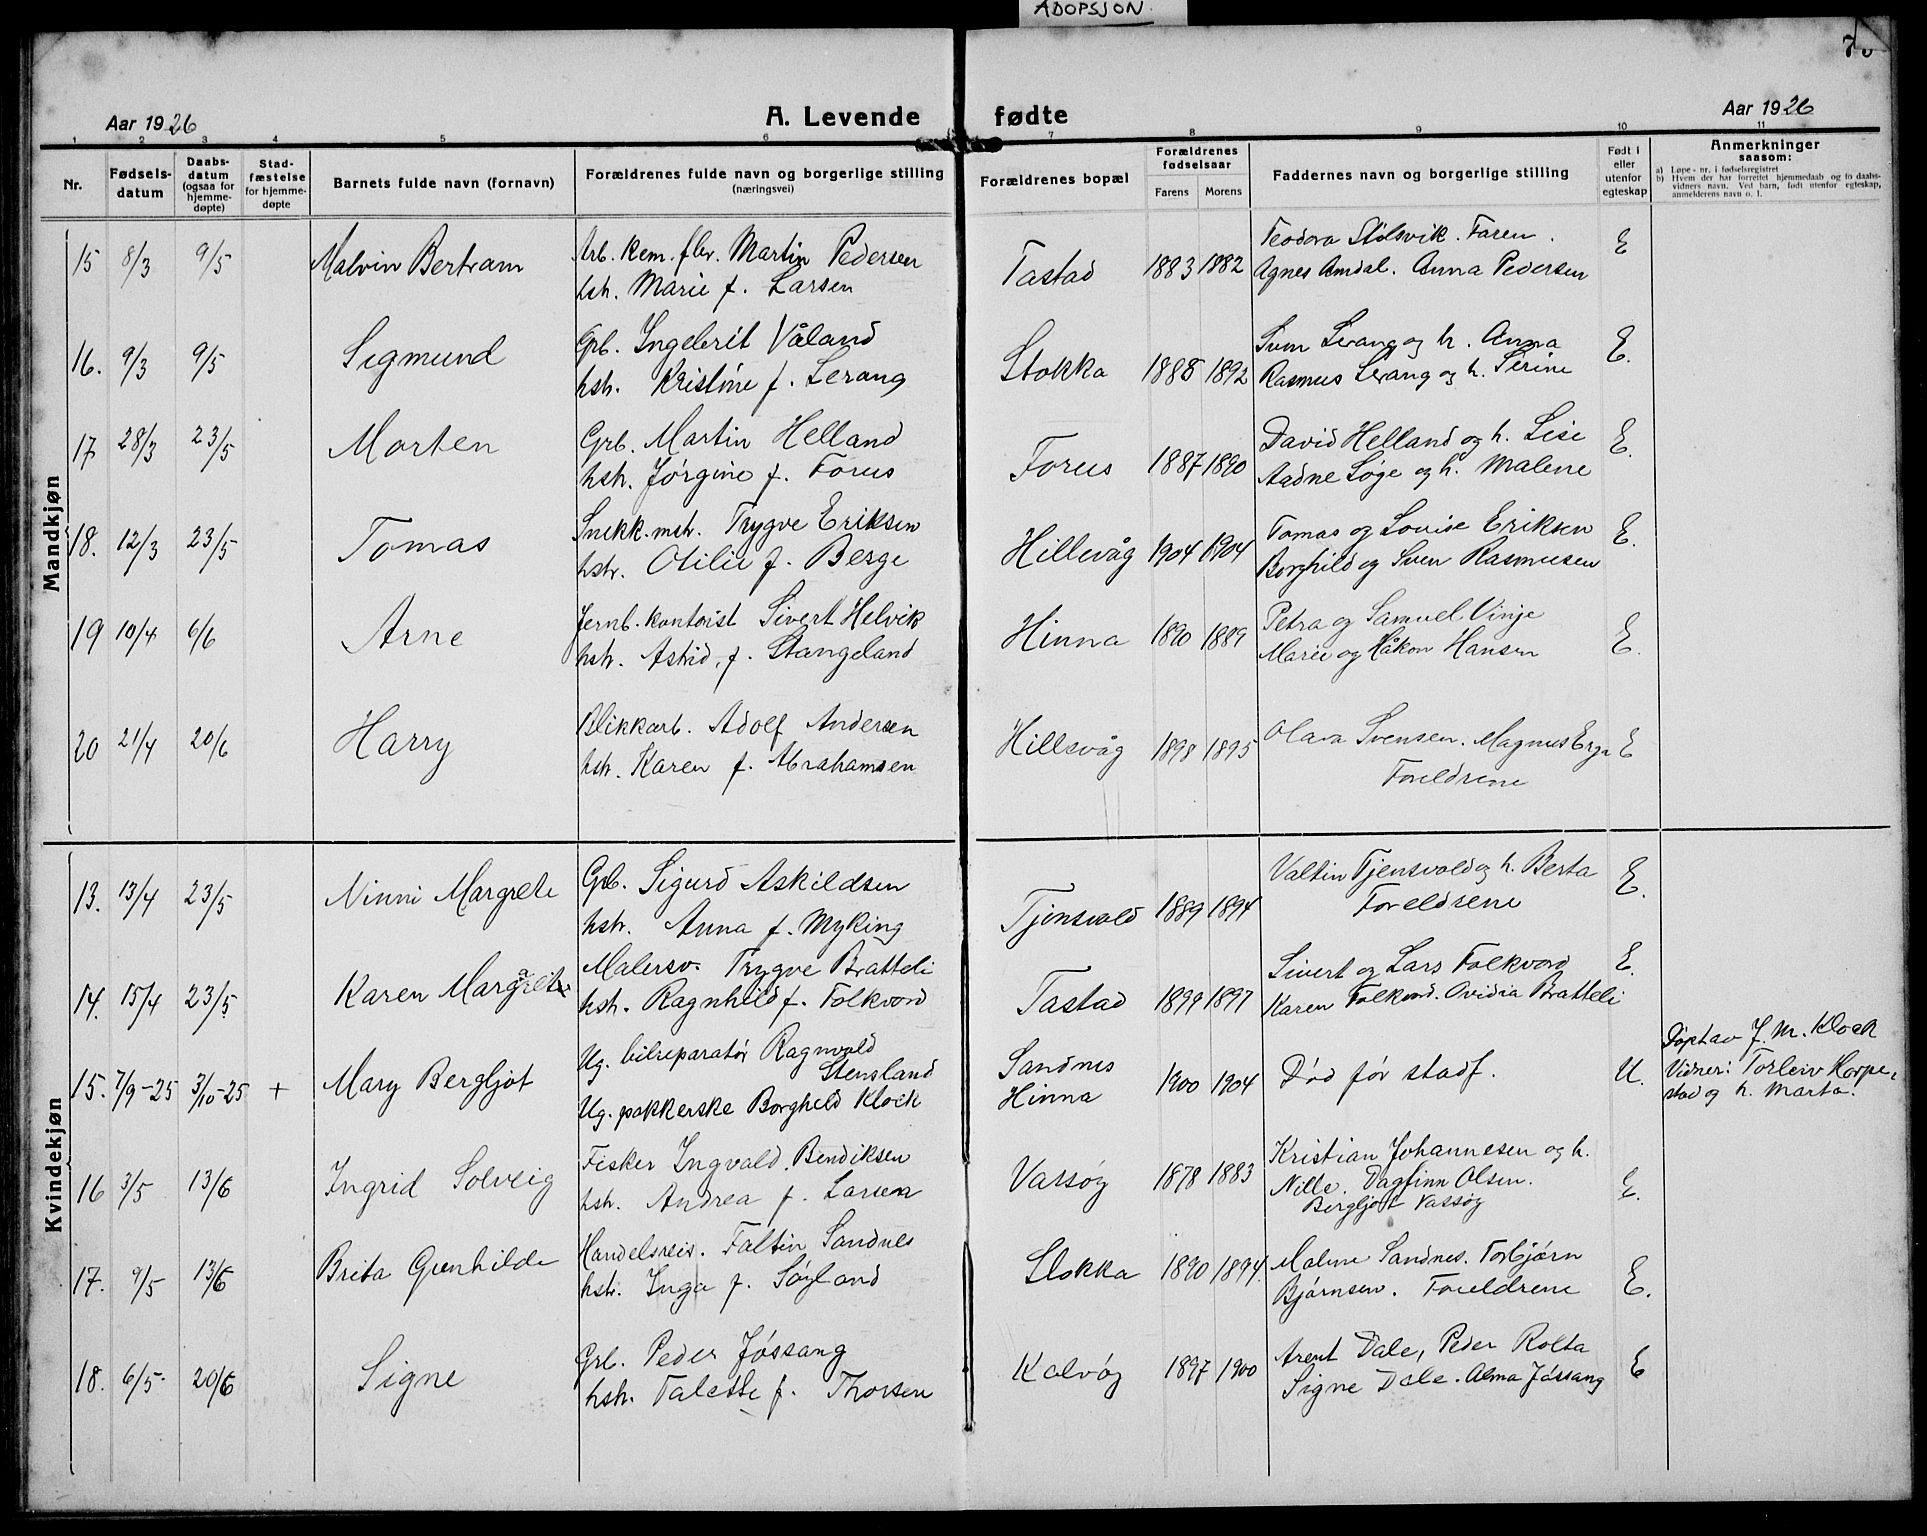 ADOPSJON.
Aar 1926
A. Levende fødte
Aar 1926
1 2 3 4 5 6 7 8 9 10 11
Nr.
Fødsels-
datum
Daabs-
datum
(ogsaa for
hjemme-
døpte)
Stad-
fæstelse
for hjemme-
døpte
Barnets fulde navn (fornavn)
Forældrenes fulde navn og borgerlige stilling
(næringsvei)
Forældrenes bopæl
Forældrenes
fødselsaar
Farens Morens
Faddernes navn og borgerlige stilling
Født i
eller
utenfor
egteskap
Anmerkninger
saasom:
a) Løpe-nr. i fødselsregistret
b) Hvem der har forrettet hjemmedaab og to daabs-
vidners navn. Ved barn, født utenfor egteskap,
anmelderens navn o. l.
Mandkjøn
15 8/3 9/5 Malvin Bertram
Arb. kem. fbr. Martin Pedersen
hstr. Marie f. Larsen
Tastad 1883 1882
Teodora Stølsvik. Faren.
Agnes Amdal. Anna Pedersen
E
16. 9/3 9/5 Sigmund
Grb. Ingebrit Våland
hstr. Kristine f. Lerang
Stokka 1888 1892
Sven Lerang og h. Anna
Rasmus Lerang og h. Serine
E.
17 28/3 23/5 Morten
Grb. Martin Helland
hstr. Jørgine f. Forus
Forus 1887 1890
David Helland og h. Lise
Aadne Søge og h. Malene
E.
18. 12/3 23/5 Tomas
Snekk.mstr. Trygve Eriksen
hstr. Otilie f. Berge
Hillevåg 1904 1904
Tomas og Louise Eriksen
Borghild og Sven Rasmussen
E.
19 10/4 6/6 Arne
Jernb.kontorist Sivert Helvik
hstr. Astrid, f. Stangeland
Hinna 1890 1889
Petra og Samuel Vinje
Marie og Håkon Hansen
E.
20 21/4 20/6 Harry
Blikkarb. Adolf Andersen
hstr. Karen f. Abrahamsen
Hillevåg 1898 1895
Olava Svensen. Magnus
Foreldrene
E
Kvindekjøn
13. 13/4 23/5 Ninni Margrete
Grb. Sigurd Askildsen
hstr. Anna f. Myking
Tjensvold 1889 1894
Valtin Tjensvold og h. Berta
Foreldrene
E.
14. 15/4 23/5 Karen Margaret
Malersv. Trygve Bratteli
hstr. Ragnhild f. Folkvord
Tastad 1899 1897
Sivert og Lars Folkvord
Karen Folkvord. Ovidia Bratteli
E.
15. 7/9-25 3/10-25 + Mary Bergljot
Ug. bilreparatør Ragnvald
Stensland
Ug. pakkerske Borghild Klock
Sandnes
Hinna
1900 1904
Død før stadf.
U.
Døpt av J. M. Klock
Vidner: Torleiv Horpe-
stad og h. Marta.
16 3/5 13/6 Ingrid Solveig
Fisker Ingvald Bendiksen
hstr. Andrea f. Larsen
Vassøy 1878 1883
Kristian Johannesen og h.
Nille. Dagfinn Olsen.
Bergljot Vassøy
E.
17. 9/5 13/6 Brita Gunhilde
Handelsreis. Faltin Sandnes
hstr. Inga f. Søyland
Stokka 1890 1894.
Malene Sandnes. Torbjørn
Bjørnsen. Foreldrene
E.
18. 6/5 20/6 Signe
Grb. Peder Jøssang
hstr. Talette f. Thorsen
Kalvøy 1897 1900
Arent Dale, Peder Rolta
Signe Dale. Alma Jøssang
E